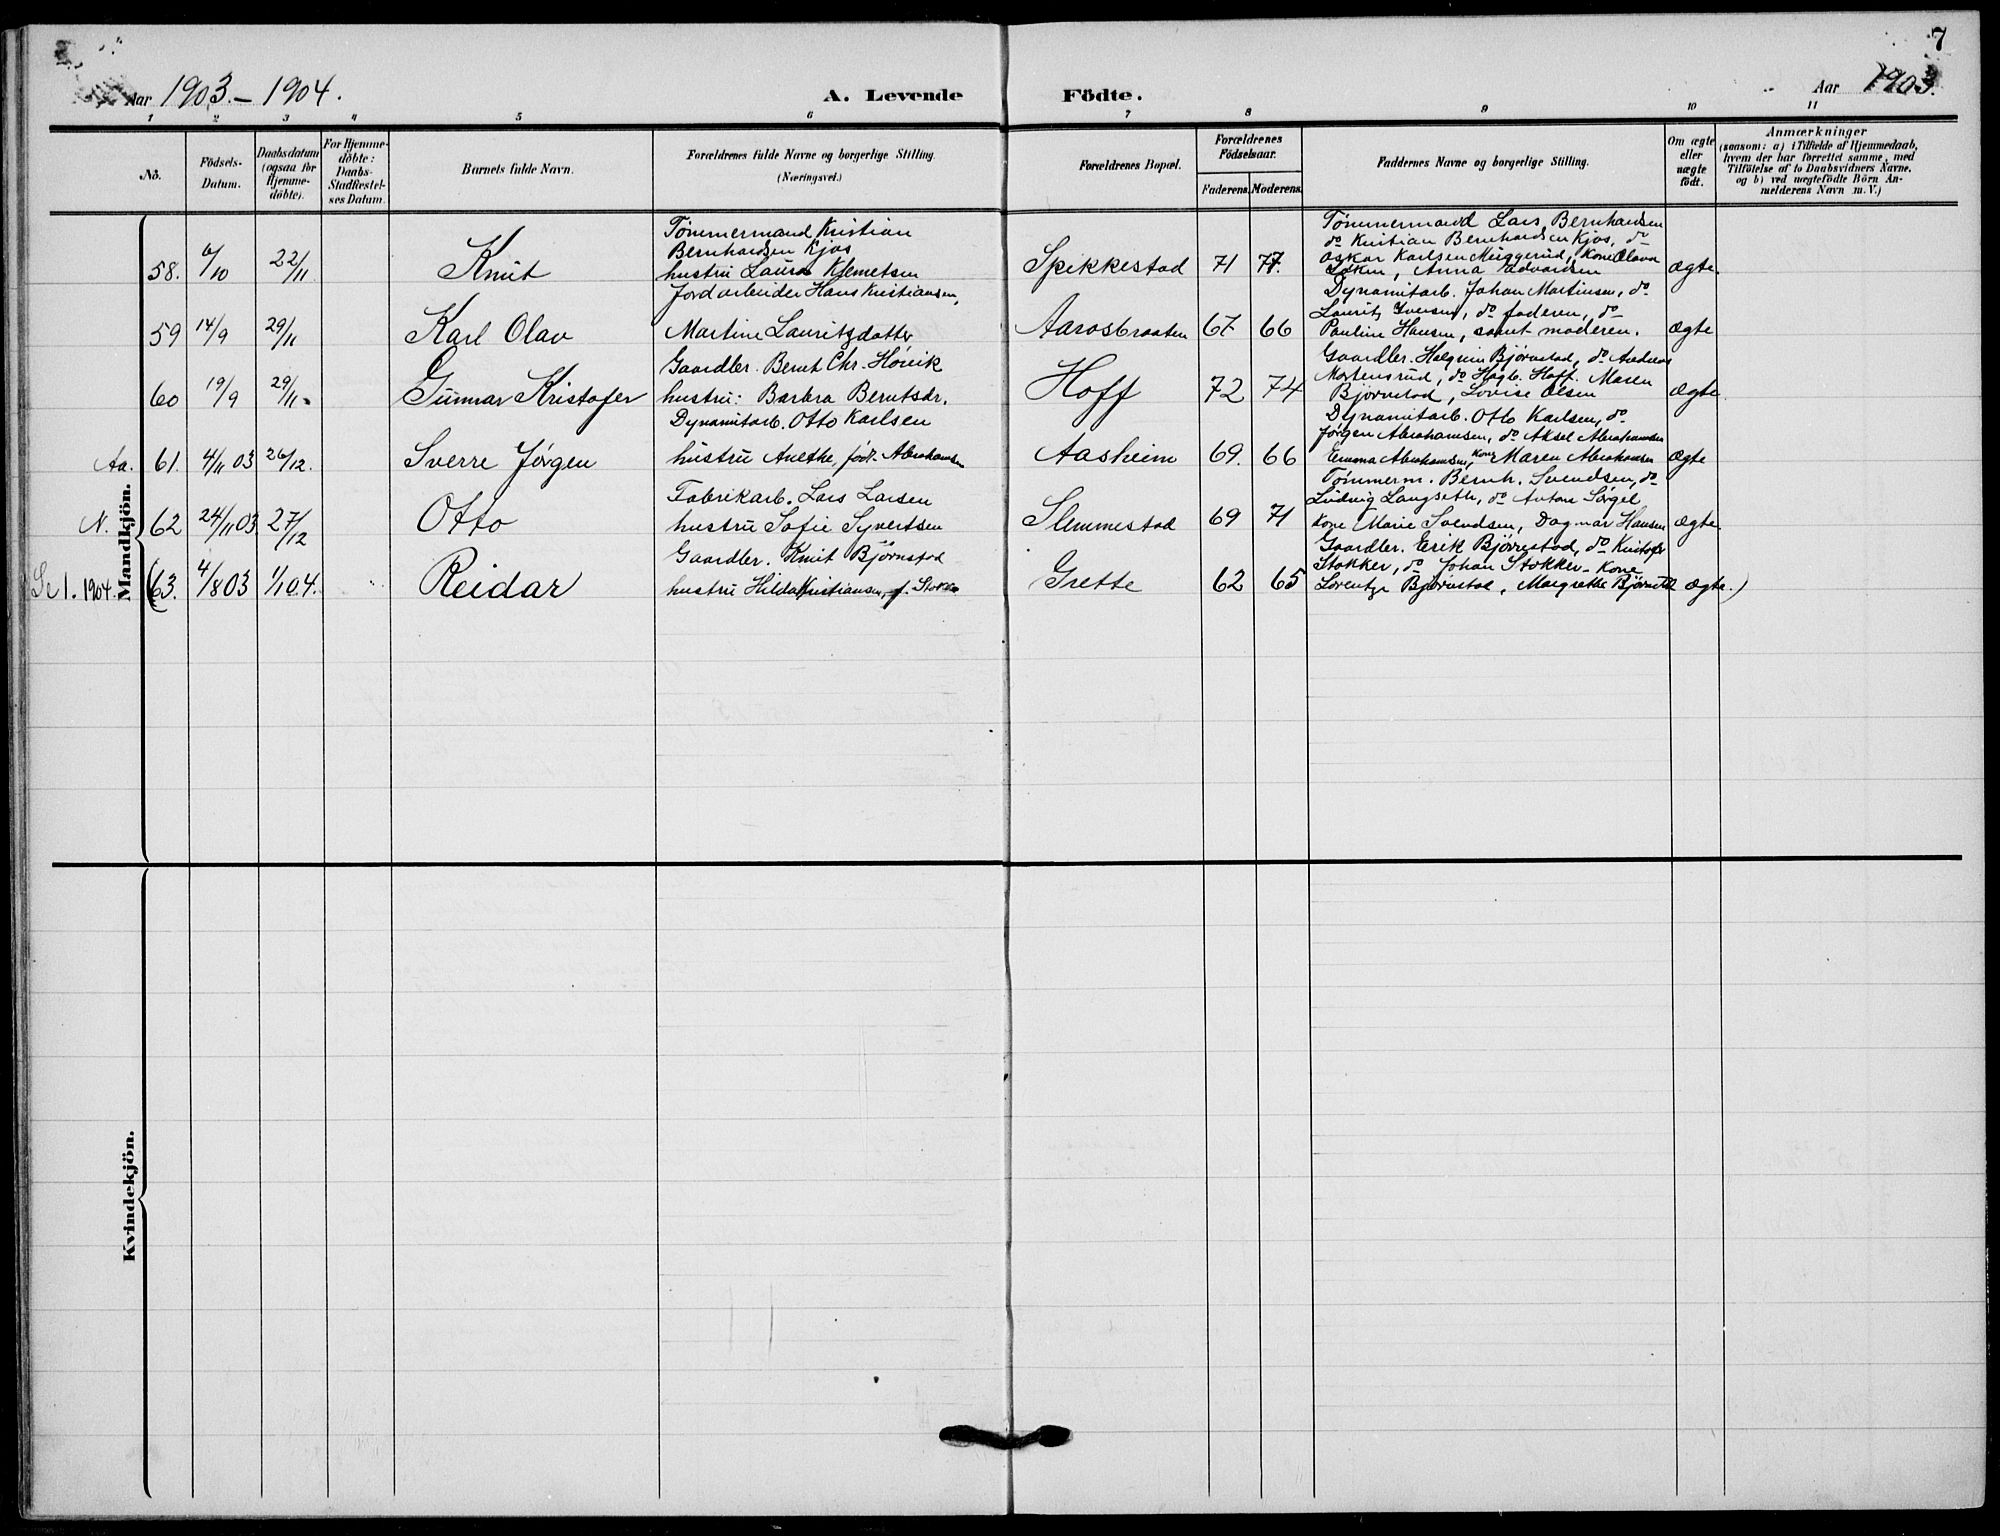 7
Aar 1903 - 1904.
A. Levende Födte.
Aar 1903.
1 2 3 4 5 6 7 8 9 10 11
Nö.
Födsels-Datum.
Daabsdatum (ogsaa for Hjemme-døbte).
For Hjemme-døbte: Daabs-Stadfæstel-ses Datum.
Barnets fulde Navn.
Forældrenes fulde Navne og borgerlige Stilling.
(Næringsvei.)
Forældrenes Bopæl.
Forældrenes Födselsaar.
Faderens. Moderens.
Faddernes Navne og borgerlige Stilling.
Om ægte eller uægte født.
Anmærkninger
(saasom: a) i Tilfælde af Hjemmedaab,
hvem der har forrettet samme, med
Tilføielse af to Daabsvidners Navne.
og b) ved uægtefödte Börn An-
melderens Navn m. V.)
Mandkjön.
58. 6/10 22/11 Knut
Tømmermand Kristian
Bernhardsen Kjos
hustru Laura Klemetsen
Spikkestad 71 77.
Tømmermand Lars Bernhardsen
do Kristian Bernhardsen Kjos, do
Oskar Karlsen Muggerud, Kone Olava
Løken, Anna Edvardsen
Ægte.
59 14/9 29/11 Karl Olav
Jordarbeider Hans Kristiansen,
Martine Lauritzdatter
Aarosbraaten 67 66
Dynamitarb. Johan Martinsen, do
Lauritz Iversen, do faderen, do
Pauline Hansen, samt moderen.
Ægte
60 19/9 29/11. Gunnar Kristofer
Gaardbr. Bernt Chr. Høvik
hustru: Barbra Berntsdr.
Hoff 72 74
Gaardbr. Halgrim Bjørnstad, do Andreas
Mortensrud, do Hagb. Hoff. Maren
Bjørnstad, Lovise Olsen
Ægte
Aa. 61. 4/11 03 26/12. Sverre Jørgen
Dynamitarb. Otto Karlsen
hustru Anethe, født Abrahamsen
Aasheim 69. 66
Dynamitarb. Otto Karlsen, do
Jørgen Abrahamsen, do Aksel Abrahamsen
Emma Abrahamsen, Kone Maren Abrahamsen
Ægte
N. 62 24/11 03. 27/12 Otto
Fabrikarb. Lars Larsen
hustru Sofie Syvertsen
Slemmestad 69 71
Tømmerm. Bernh. Svendsen, do
Ludvig Langseth, do Anton Sørgel
Kone Marie Svendsen, Dagmar Hansen
Ægte
1. 1904. (63. 4/8 03 1/1 04. Reidar
Gaardbr. Knut Bjørnstad
hustru Hilda Kristiansen, f. Stokker
Grette 62 65
Gaardbr. Erik Bjørnestad, do Kristofer
Stokker, do Johan Stokker - Kone
Lorentze Bjørnstad, Margrethe Bjørnstad
Ægte.)
Kvindekjön.